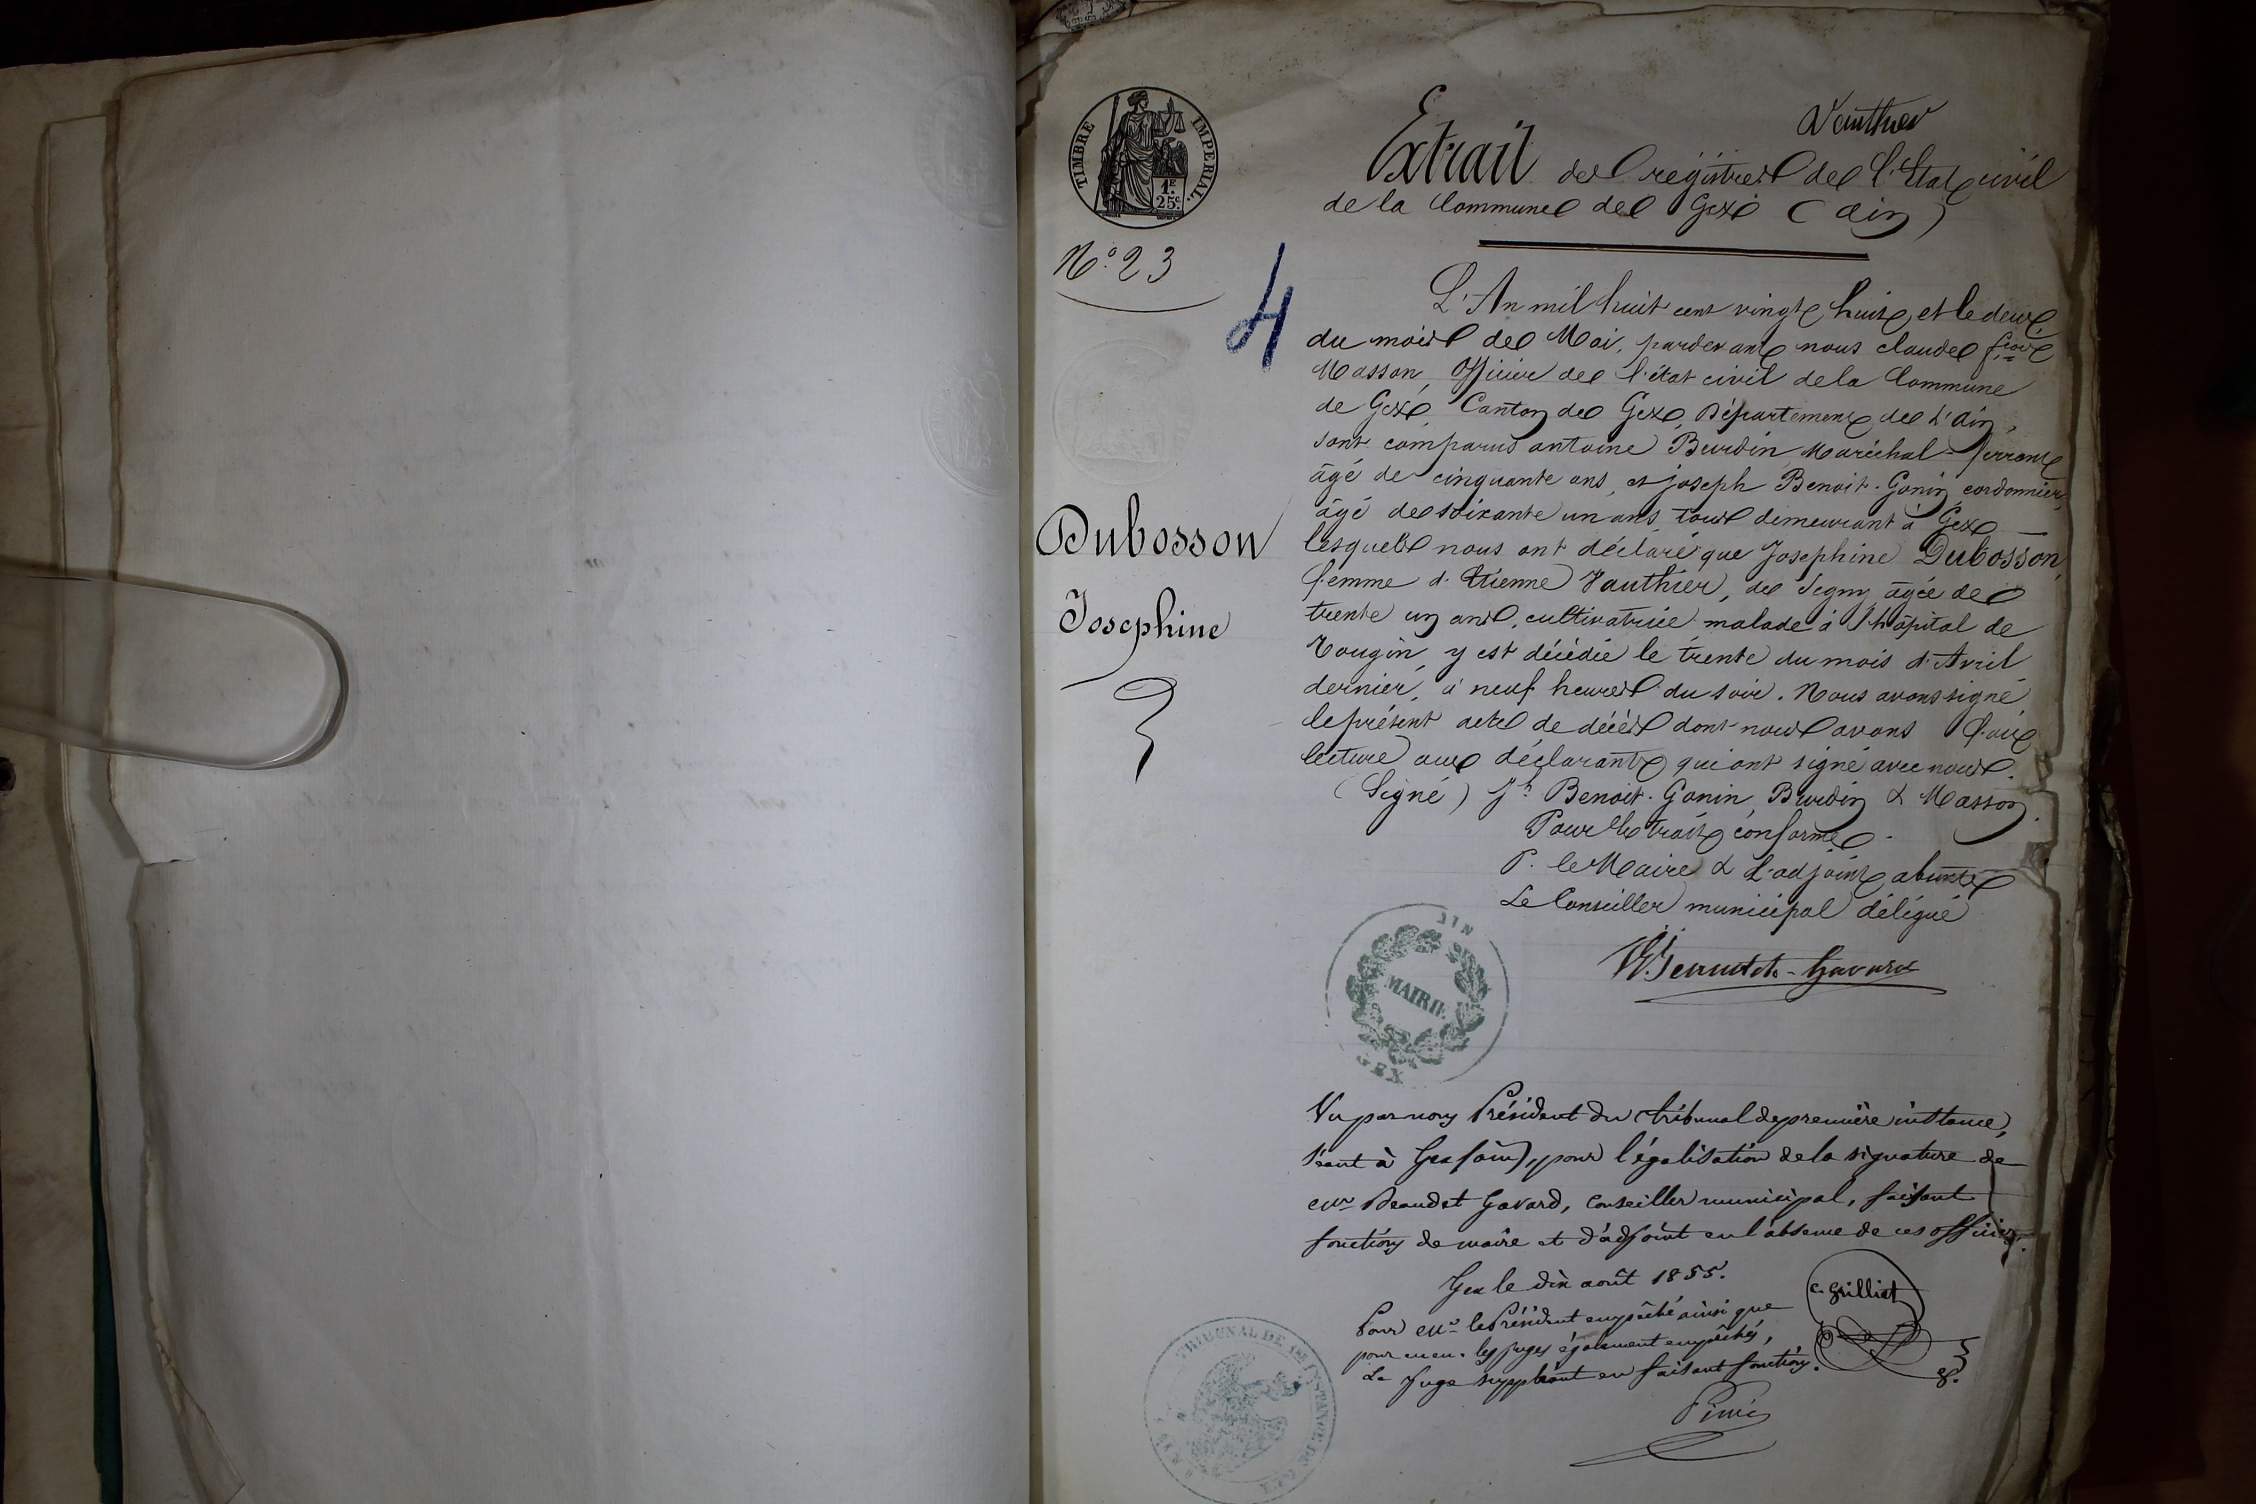 TIMBRE IMPERIAL
1F 25c.
Vauthier
Extrait des régistres de l'Etat civil
de la Commune de Gex (Ain)
N.o 23
4
L'An mil huit cent vingt huit, et le deux
du mois de Mai, pardevant nous Claude fçois
Masson, Officier de l'état civil de la Commune
de Gex, Canton de Gex, Département de l'Ain,
sont comparus antoine Burdin Maréchal-ferrant
âgé de cinquante ans, et joseph Benoit-Gonin cordonnier,
âgé de soixante un ans, tous demeurant à Gex
lesquels nous ont déclaré que Josephine Dubosson,
femme d'Etienne Vauthier, de Segny âgée de
trente un ans, cultivatrice malade à l'hôpital de
Tougin, y est décédée le trente du mois d'Avril
dernier, à neuf heures du soir. Nous avons signé
le présent acte de décès dont nous avons fait
lecture aux déclarants qui ont signé avec nous.
(Signé) Jh Benoit-Gonin, Burdin & Masson.
Dubosson
Josephine
Pour Extrait conforme.
P. le Maire & L'adjoint absents
Le Conseiller municipal délégué
MAIRIE
GEX
AIN
Vu par nous Président du tribunal de première instance,
séant à Gex (ain), pour légalisation de la signature de
Mr Beaudet Gavard, Conseiller municipal, faisant
fonctions de maire et d'adjoint en l'absence de ces officiers.
Gex le dix août 1855.
Pour Mr le Président empêché ainsi que
les juges également empêchés,
Le Juge suppléant en faisant fonctions.
C. Grilliet
TRIBUNAL DE 1ERE INSTANCE DE GEX